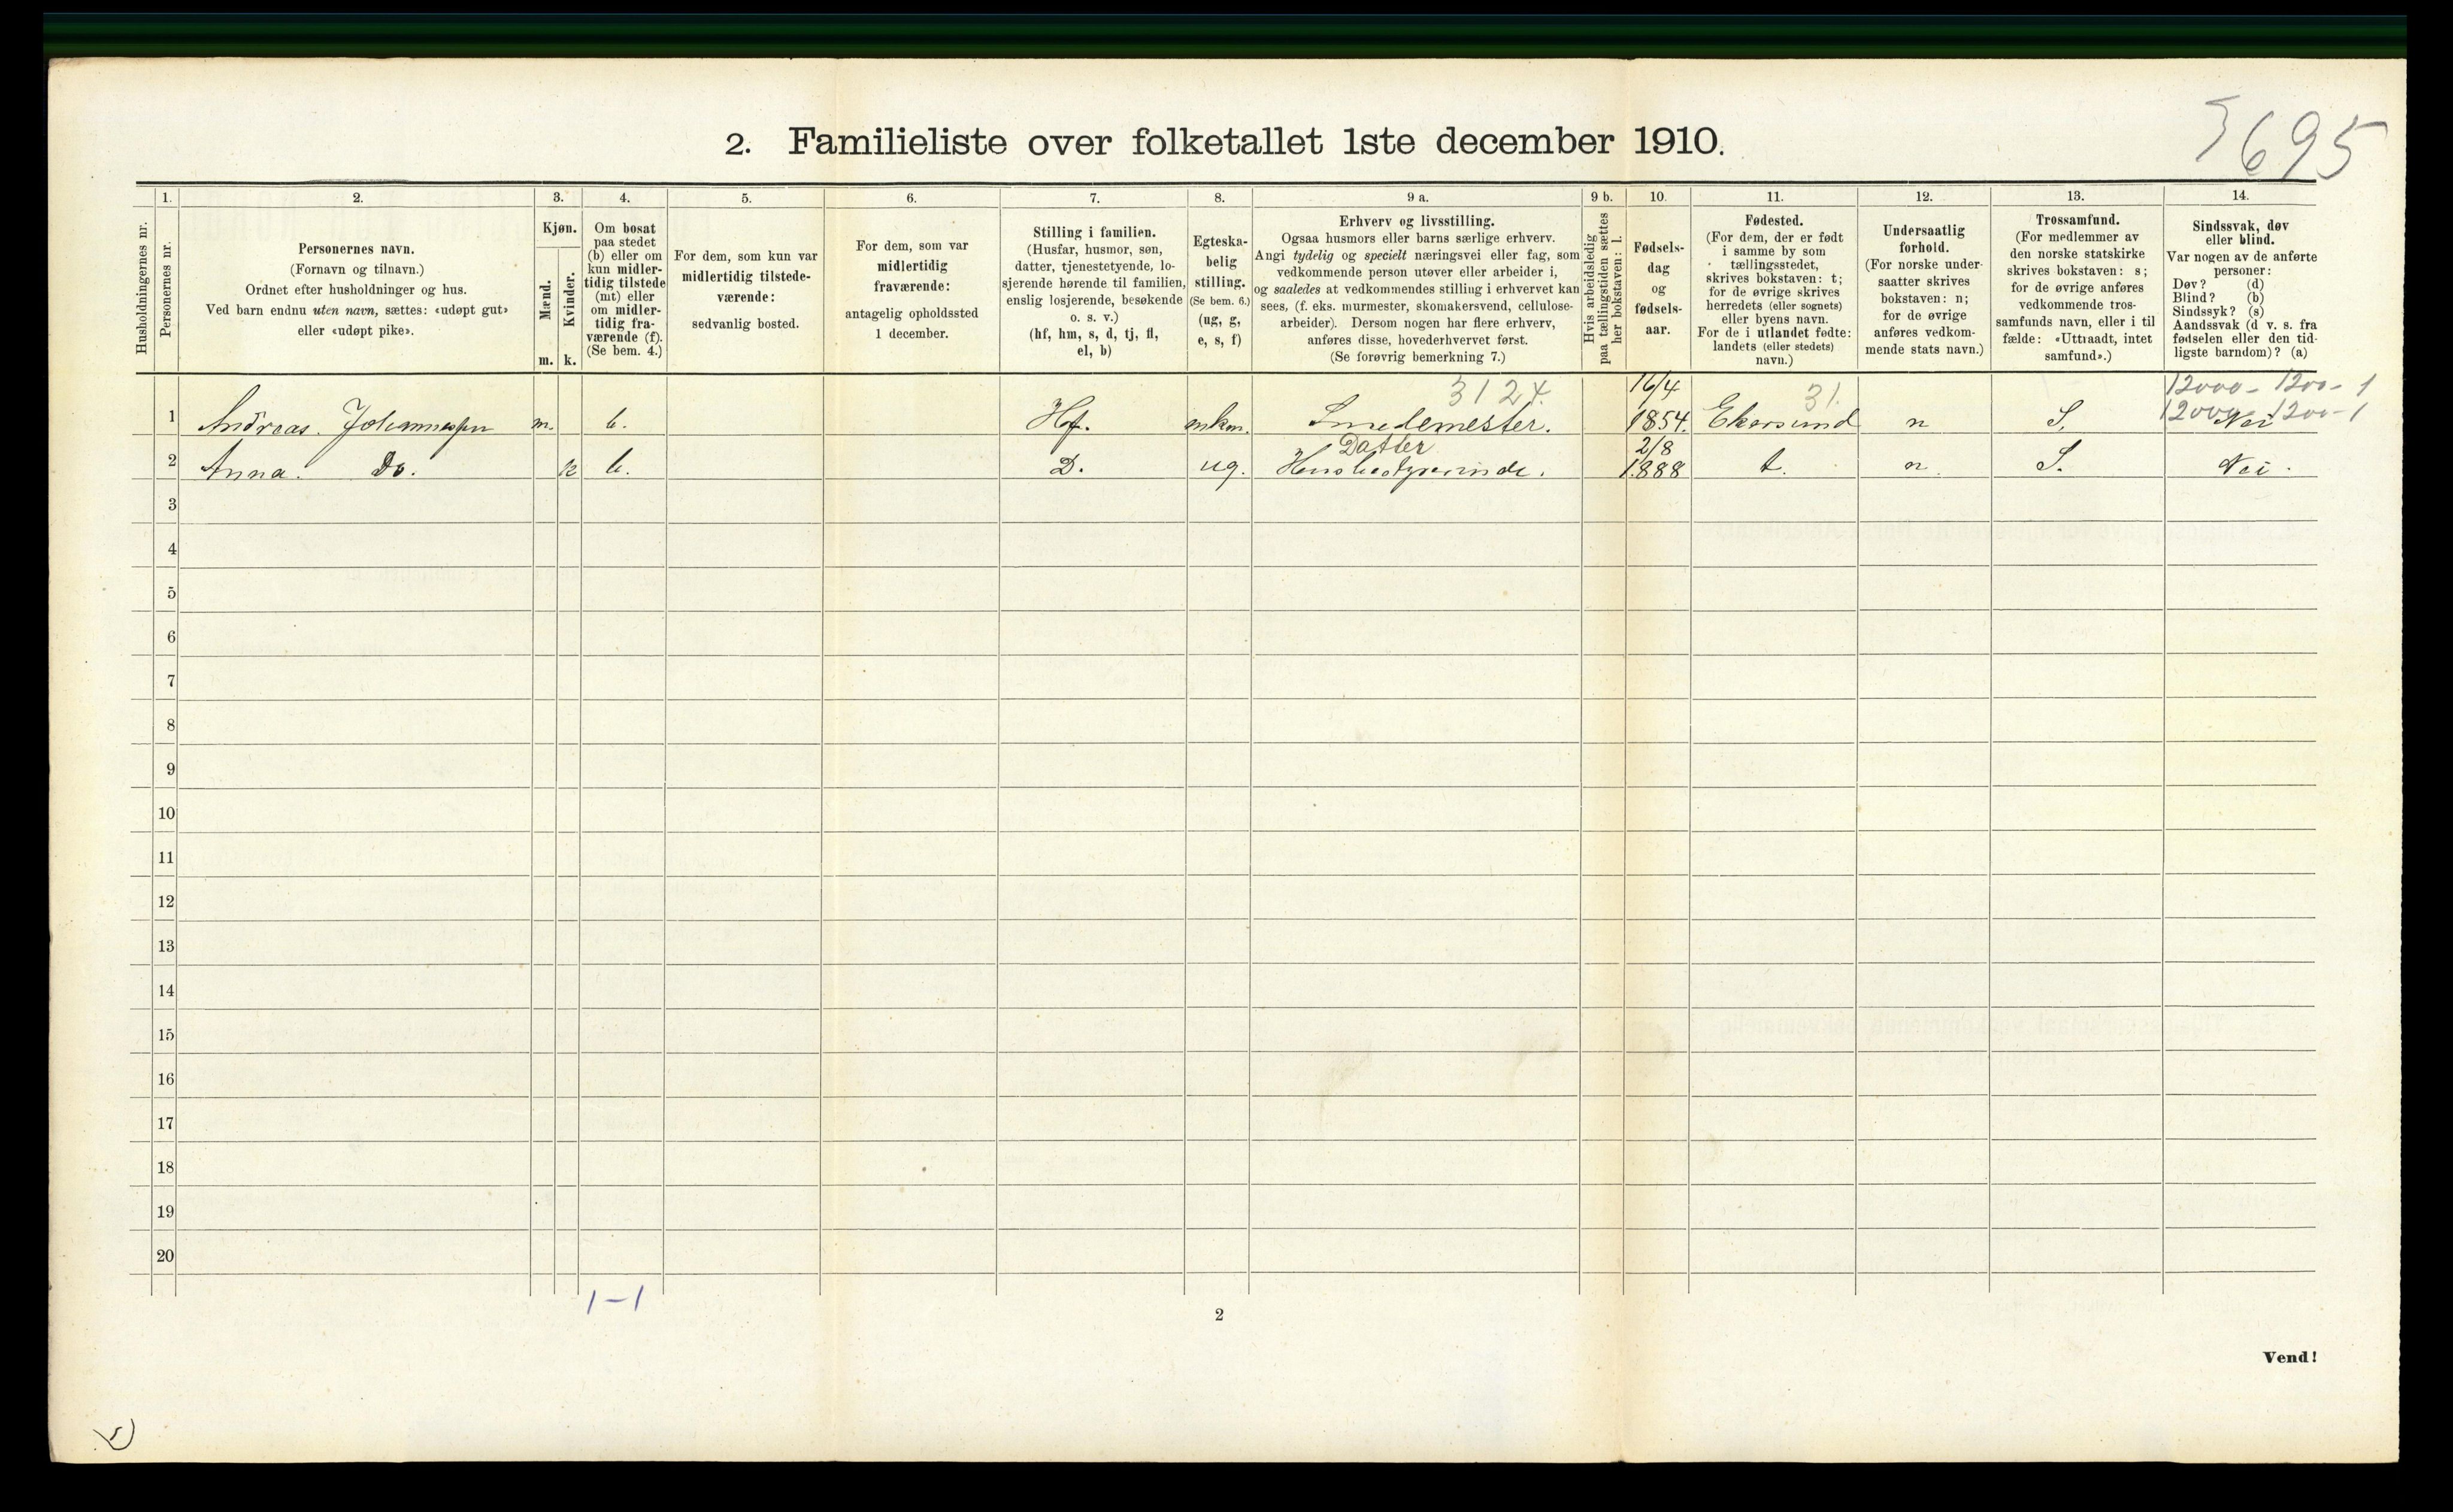 3695
2. Familieliste over folketallet 1ste december 1910.
Husholdningernes nr.
1.
Personernes nr.
2.
Personernes navn.
(Fornavn og tilnavn.)
Ordnet efter husholdninger og hus.
Ved barn endnu uten navn, sættes: «udøpt gut»
eller «udøpt pike».
3.
Kjøn.
Mænd.
m.
Kvinder.
k.
4.
Om bosat
paa stedet
(b) eller om
kun midler-
tidig tilstede
(mt) eller
om midler-
tidig fra-
værende (f).
(Se bem. 4.)
5.
For dem, som kun var
midlertidig tilstede-
værende:
sedvanlig bosted.
6.
For dem, som var
midlertidig
fraværende:
antagelig opholdssted
1 december.
7.
Stilling i familien.
(Husfar, husmor, søn,
datter, tjenestetyende, lo-
sjerende hørende til familien,
enslig losjerende, besøkende
o. s. v.)
(hf, hm, s, d, tj, fl,
el, b)
8.
Egteska-
belig
stilling.
(Se bem. 6.)
(ug, g,
e, s, f)
9 a.
Erhverv og livsstilling.
Ogsaa husmors eller barns særlige erhverv.
Angi tydelig og specielt næringsvei eller fag, som
vedkommende person utøver eller arbeider i,
og saaledes at vedkommendes stilling i erhvervet kan
sees, (f. eks. murmester, skomakersvend, cellulose-
arbeider). Dersom nogen har flere erhverv,
anføres disse, hovederhvervet først.
(Se forøvrig bemerkning 7.)
9 b.
Hvis arbeidsledig
paa tællingstiden sættes
her bokstaven: l.
10.
Fødsels-
dag
og
fødsels-
aar.
11.
Fødested.
(For dem, der er født
i samme by som
tællingsstedet,
skrives bokstaven: t;
for de øvrige skrives
herredets (eller sognets)
eller byens navn.
For de i utlandet fødte:
landets (eller stedets)
navn.)
12.
Undersaatlig
forhold.
(For norske under-
saatter skrives
bokstaven: n;
for de øvrige
anføres vedkom-
mende stats navn.)
13.
Trossamfund.
(For medlemmer av
den norske statskirke
skrives bokstaven: s;
for de øvrige anføres
vedkommende tros-
samfunds navn, eller i til
fælde: «Uttraadt, intet
samfund».)
14.
Sindssvak, døv
eller blind.
Var nogen av de anførte
personer:
Døv? (d)
Blind? (b)
Sindssyk? (s)
Aandssvak (d v. s. fra
fødselen eller den tid-
ligste barndom)? (a)
3124. 16/4 31. 12000 - 1200 - 1
1 Andreas. Johannessen m. b. Hf. enkm. Smedemester. 1854. Ekersund n S. 12000 1200-1 Nei
Datter 2/8
2 Anna. Do. k b. D. ug. Husbestyrerinde. 1888 t. n. S. Nei.
3
4
5
6
7
8
9
10
11
12
13
14
15
16
17
18
19
20
1-1
2
Vend!